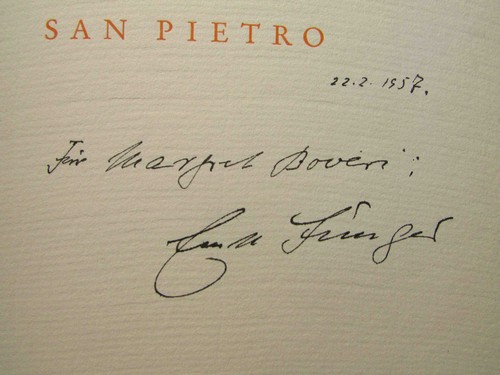 SAN PIETRO
22.2.1957.
Für Margret Boveri:
Ernst Jünger